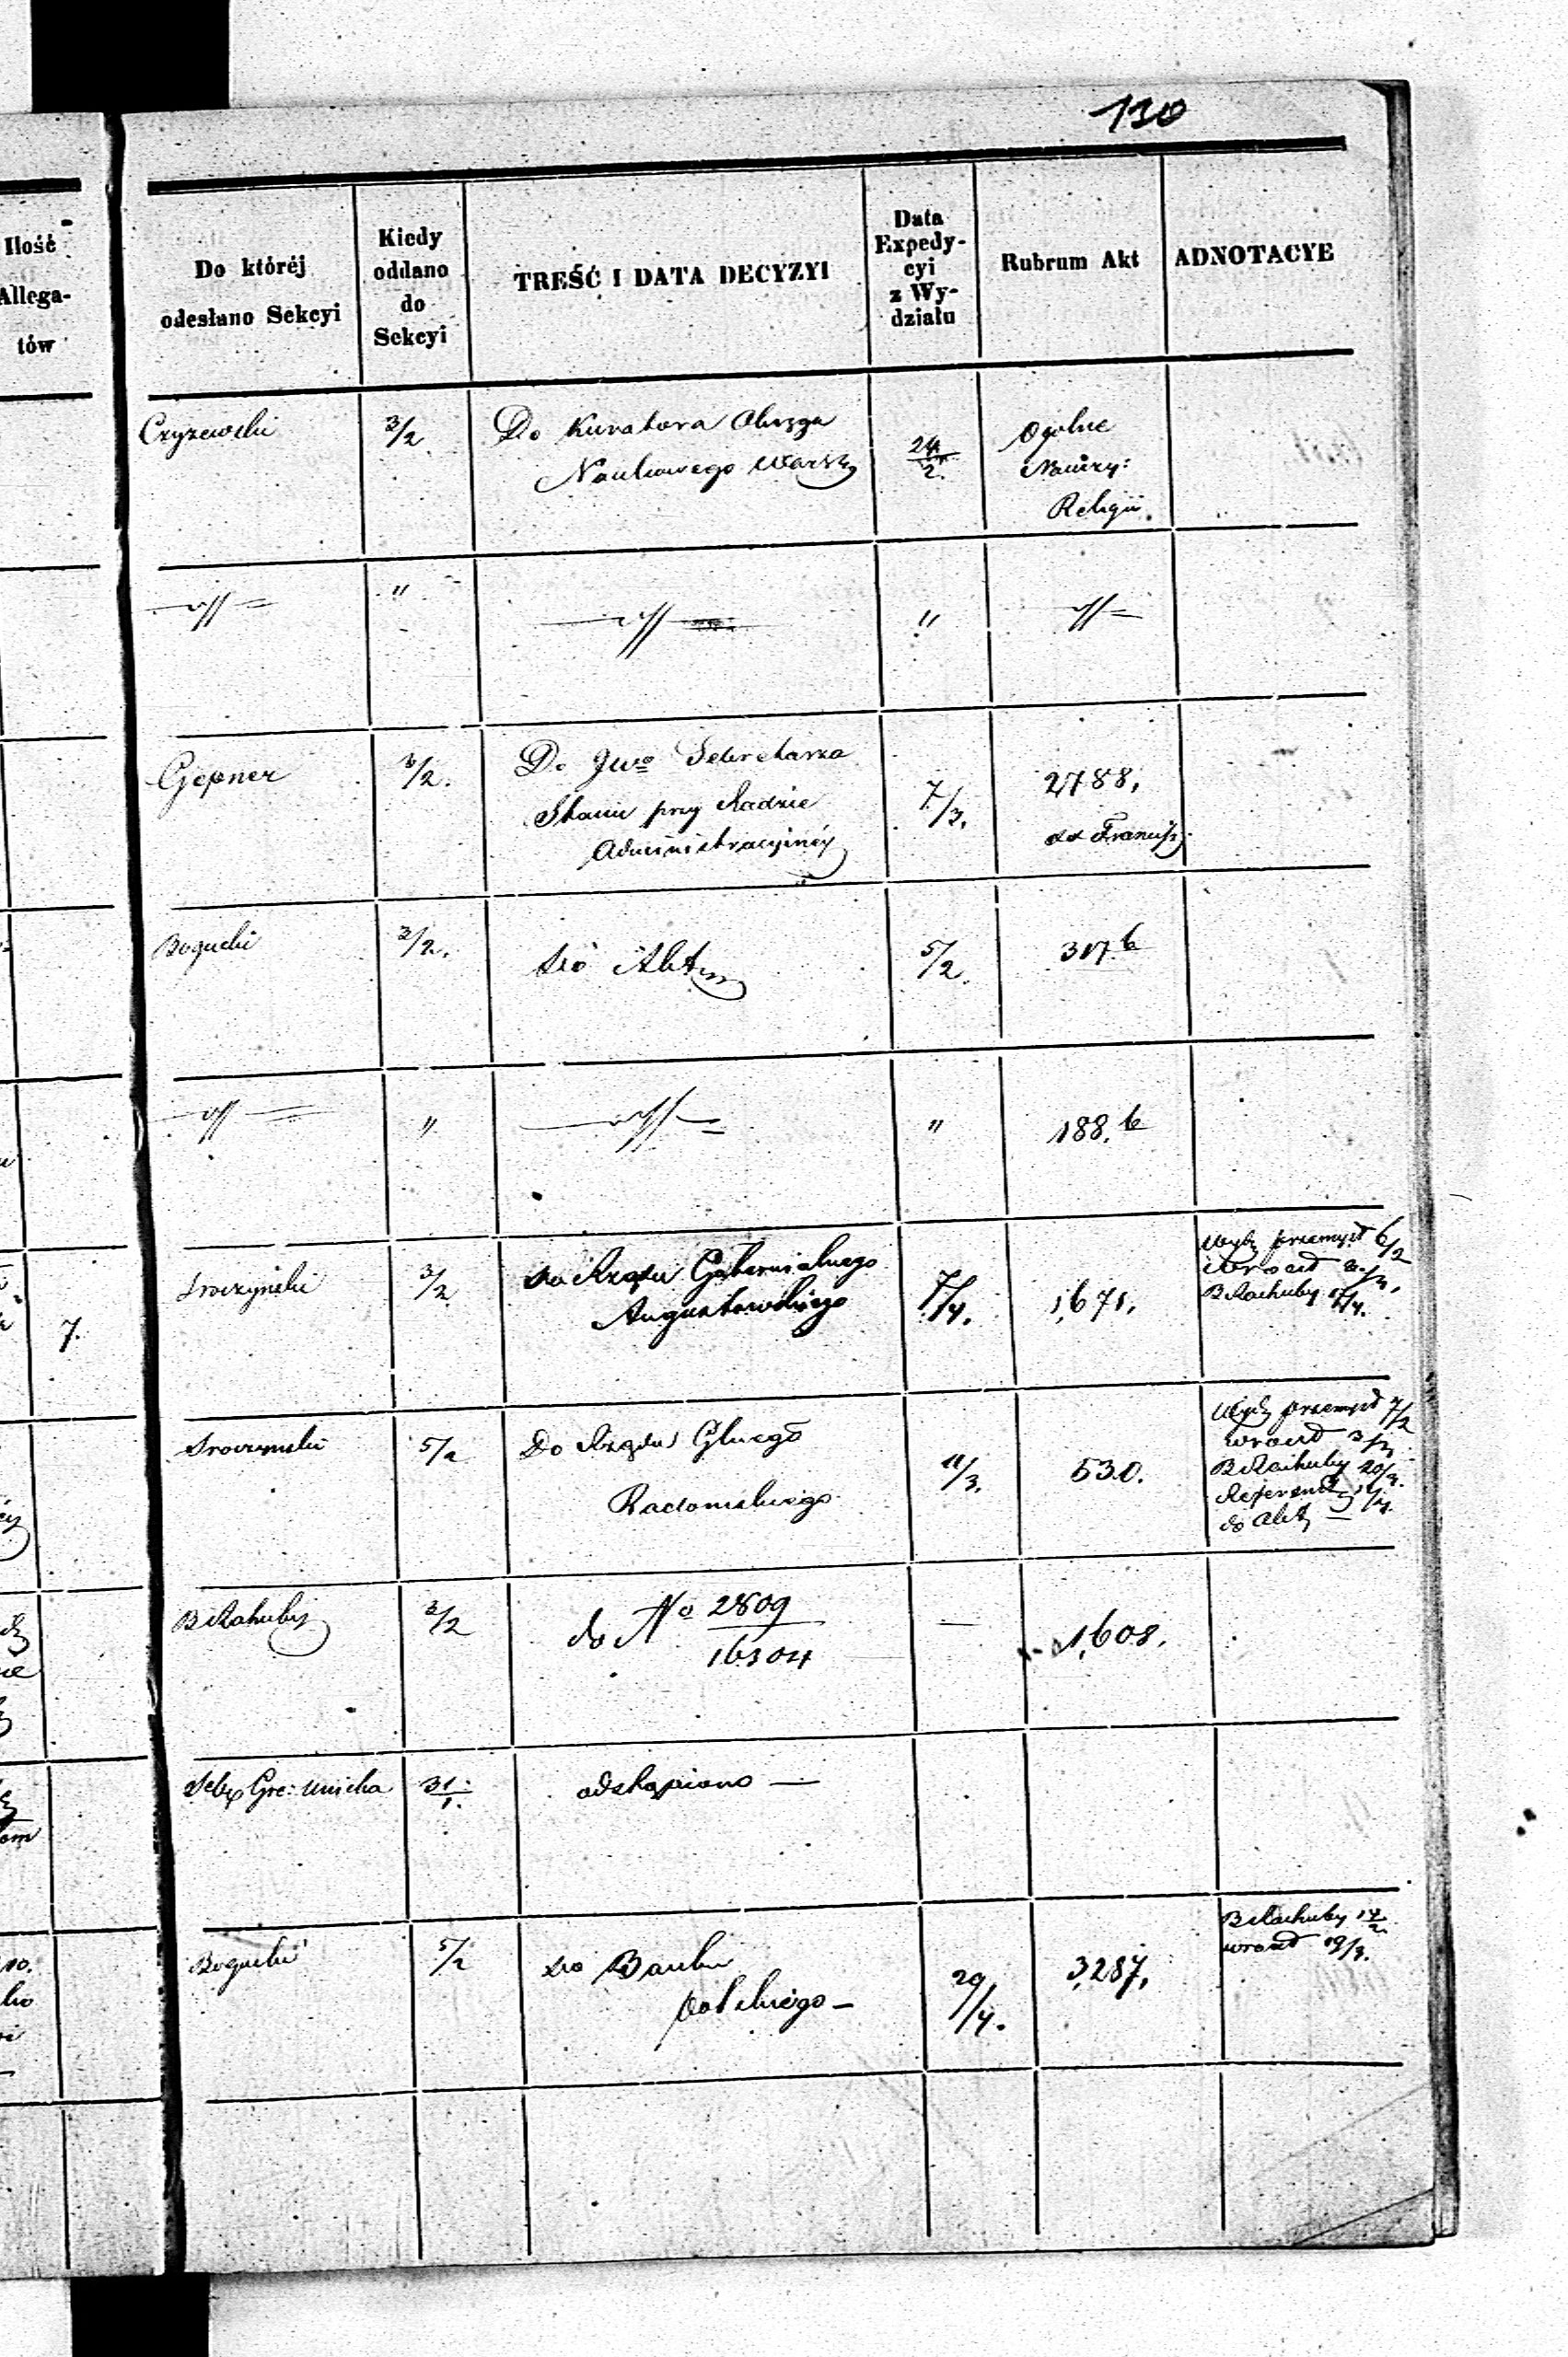 130
Ilość
Allega-
tów
Do któréj
odesłano Sekcyi
Kiedy
oddano
do
Sekcyi
TREŚĆ I DATA DECYZYI
Data
Expedy-
cyi
z Wy-
działu
Rubrum Akt
ADNOTACYE
Czyżewski
3/2
Do Kuratora Okręgu
Naukowego Warsz
24/2.
Ogólne
Nauczy:
Religii
"
"
Gepner
3/2.
Do JWo Sekretarza
Stanu przy Radzie
Administracyjnéj
7/3.
2788.
Francisz.
Bogucki
3/2.
do Akt
5/2.
317.b
"
"
188.b
7.
Sroczyński
3/2
do Rządu Gubernialnego
Augustowskiego
7/4.
1,671.
Wydz przemysł 6/2
wrócił
B Rachuby
Sroczyński
5/2
Do Rządu Glnego
Radomskiego
11/3.
530.
Wydz przemysł 7/2
wrócił 3/3
B Rachuby 20/3.
Referend
do Akt
B Rachuby
3/2
do No 2809
16304
—
1,608.
Sekcy Gre: Unicka
31/1.
odstąpiono —
Bogucki
5/2
do Banku
Polskiego —
29/4.
3,287.
B Rachuby 17/2
wrócił 19/3.